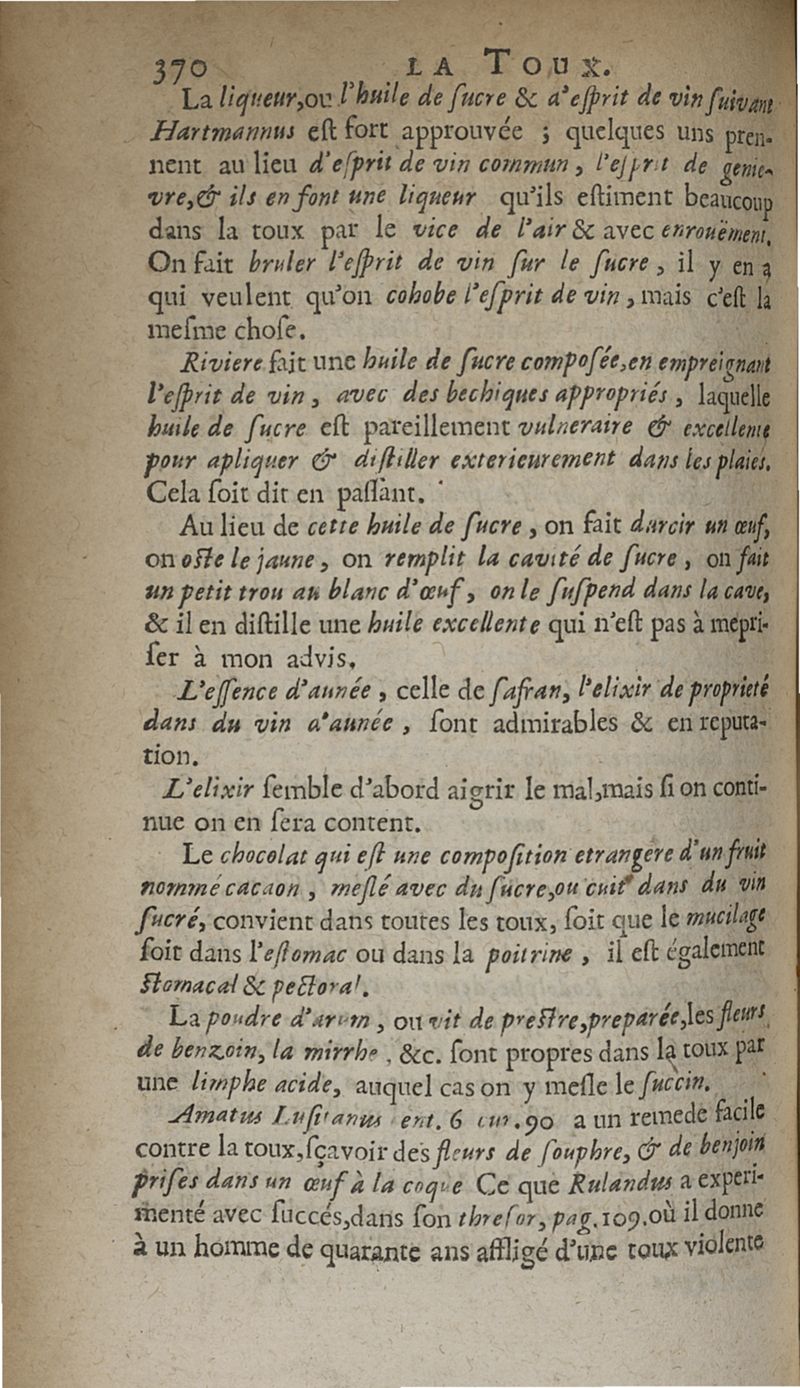 370 LA TOUX.
La liqueur,ou l'huile de ſucre & d'eſprit de vin ſuivant
Hartmannus eſt fort approuvée ; quelques uns pren-
nent au lieu d'eſprit de vin commun, l'eſprit de genie-
vre,& ils en font une liqueur qu'ils eſtiment beaucoup
dans la toux par le vice de l'air & avec enrouëment,
On fait bruler l'eſprit de vin ſur le ſucre, il y en a
qui veulent qu'on cohobe l'eſprit de vin, mais c'eſt la
meſme choſe.
Riviere fait une huile de ſucre compoſée,en empreignant
l'eſprit de vin, avec des bechiques appropriés, laquelle
huile de ſucre eſt pareillement vulneraire & excellente
pour apliquer & diſtiller exterieurement dans les plaies.
Cela ſoit dit en paſſant.
Au lieu de cette huile de ſucre, on fait durcir un œuf,
on oſte le jaune, on remplit la cavité de ſucre, on fait
un petit trou au blanc d'œuf, on le ſuſpend dans la cave,
& il en diſtille une huile excellente qui n'eſt pas à mépri-
ſer à mon advis,
L'eſſence d'aunée, celle de ſafran, l'elixir de proprieté
dans du vin d'aunée, ſont admirables & en reputa-
tion.
L'elixir ſemble d'abord aigrir le mal,mais ſi on conti-
nue on en ſera content.
Le chocolat qui eſt une compoſition etrangere d'un fruit
nommé cacaon, meſlé avec du ſucre,ou cuit dans du vin
ſucré, convient dans toutes les toux, ſoit que le mucilage
ſoit dans l'eſtomac ou dans la poitrine, il eſt également
ſtomacal & pectoral.
La poudre d'arum, ou vit de preſtre,preparée,les fleurs
de benzoin, la mirrhe, &c. ſont propres dans la toux par
une limphe acide, auquel cas on y meſle le ſuccin.
Amatus Luſitanus cent. 6 cur.90 a un remede facile
contre la toux,ſçavoir des fleurs de ſouphre, & de benjoin
priſes dans un œuf à la coque Ce que Rulandus a experi-
menté avec ſuccés,dans ſon threſor, pag.109.où il donne
à un homme de quarante ans affligé d'une toux violente